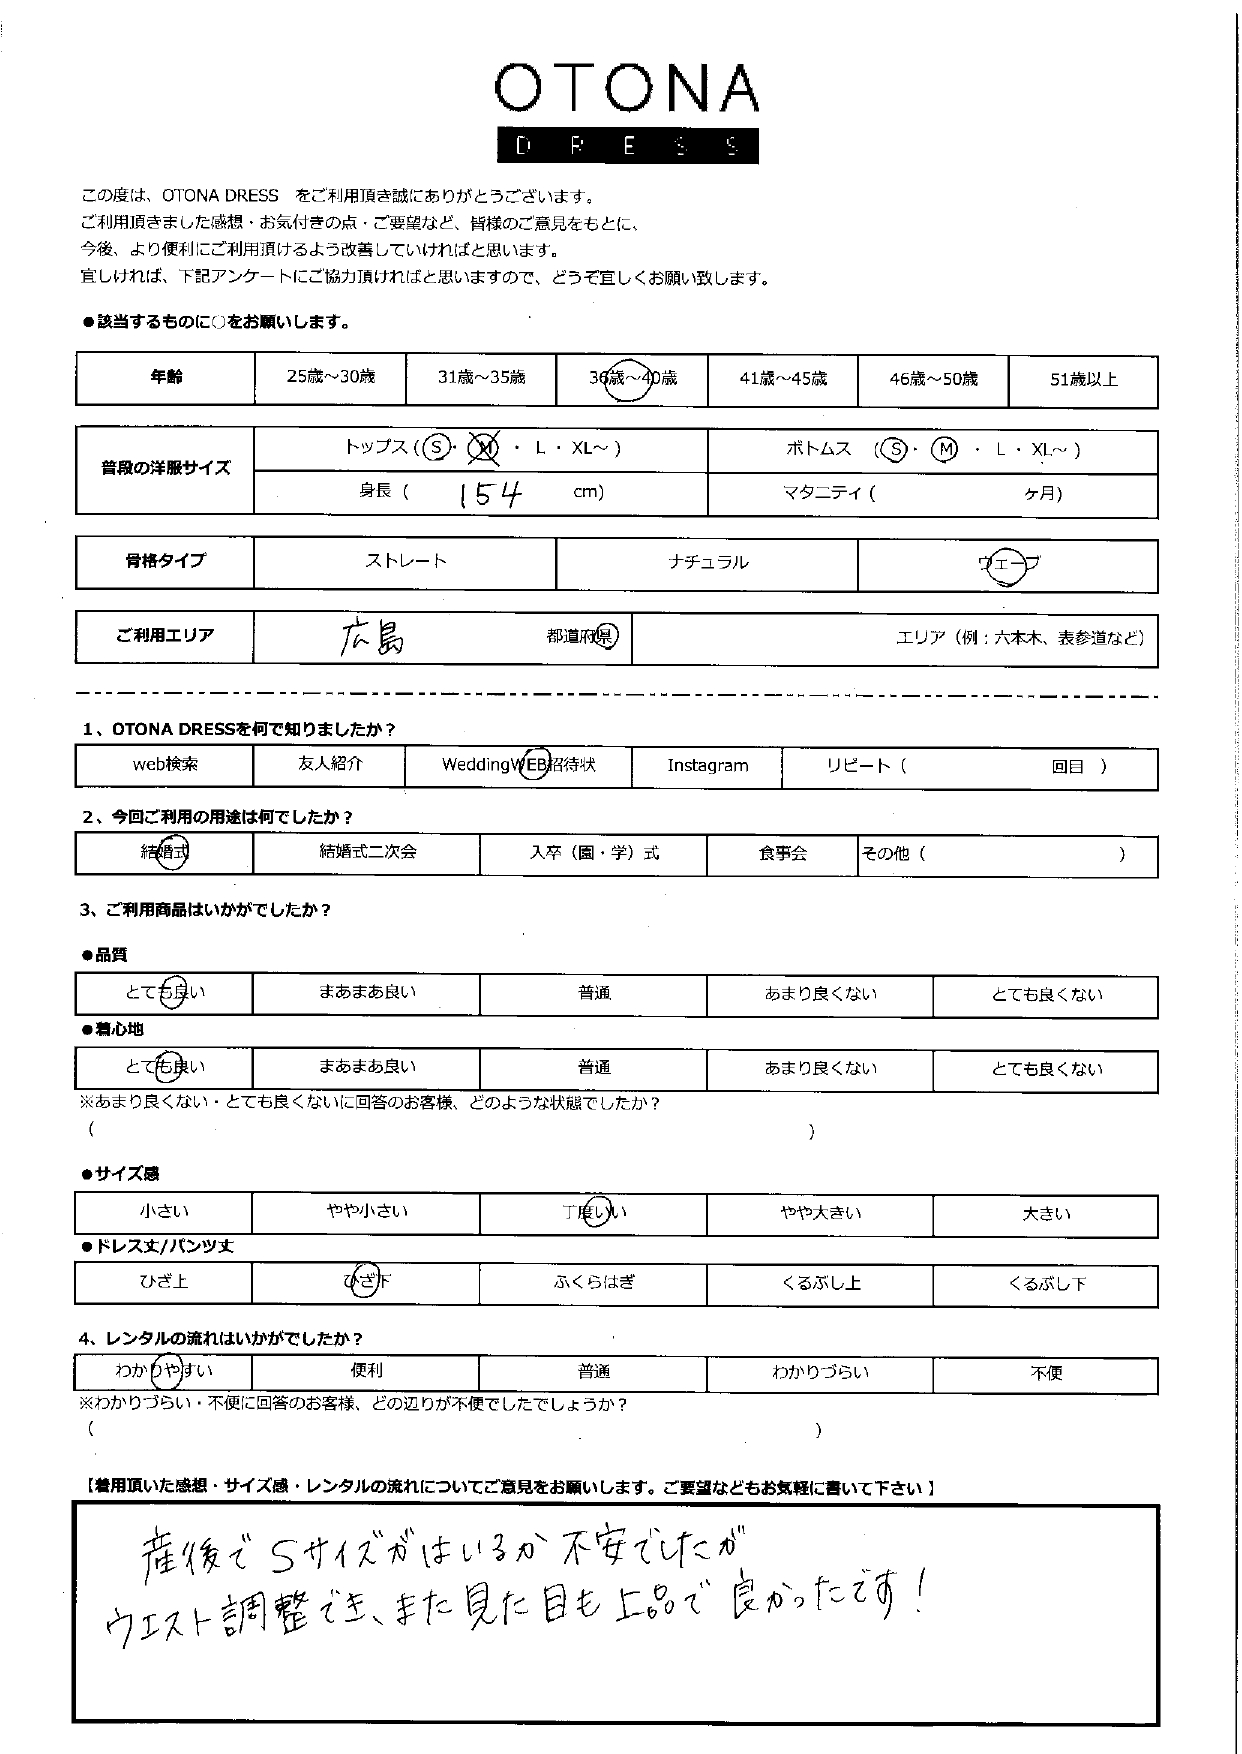 OTONA
DRESS
この度は、OTONA DRESS　をご利用頂き誠にありがとうございます。
ご利用頂きました感想・お気付きの点・ご要望など、皆様のご意見をもとに、
今後、より便利にご利用頂けるよう改善していければと思います。
宜しければ、下記アンケートにご協力頂ければと思いますので、どうぞ宜しくお願い致します。
●該当するものに○をお願いします。
年齢 25歳～30歳 31歳～35歳 36歳～40歳 41歳～45歳 46歳～50歳 51歳以上
普段の洋服サイズ トップス（S・M ・ L ・ XL～ ） ボトムス （S・ M ・ L ・ XL～ ）
身長（ 154 cm） マタニティ（ ヶ月）
骨格タイプ ストレート ナチュラル ウェーブ
ご利用エリア 広島 都道府県 エリア（例：六本木、表参道など）
1、OTONA DRESSを何で知りましたか？
web検索 友人紹介 WeddingWEB招待状 Instagram リピート（ 回目 ）
2、今回ご利用の用途は何でしたか？
結婚式 結婚式二次会 入卒（園・学）式 食事会 その他（ ）
3、ご利用商品はいかがでしたか？
●品質
とても良い まあまあ良い 普通 あまり良くない とても良くない
●着心地
とても良い まあまあ良い 普通 あまり良くない とても良くない
※あまり良くない・とても良くないに回答のお客様、どのような状態でしたか？
（ ）
●サイズ感
小さい やや小さい 丁度いい やや大きい 大きい
●ドレス丈/パンツ丈
ひざ上 ひざ下 ふくらはぎ くるぶし上 くるぶし下
4、レンタルの流れはいかがでしたか？
わかりやすい 便利 普通 わかりづらい 不便
※わかりづらい・不便に回答のお客様、どの辺りが不便でしたでしょうか？
（ ）
【着用頂いた感想・サイズ感・レンタルの流れについてご意見をお願いします。ご要望などもお気軽に書いて下さい】
産後でSサイズがはいるか不安でしたが
ウエスト調整でき、また見た目も上品で良かったです！